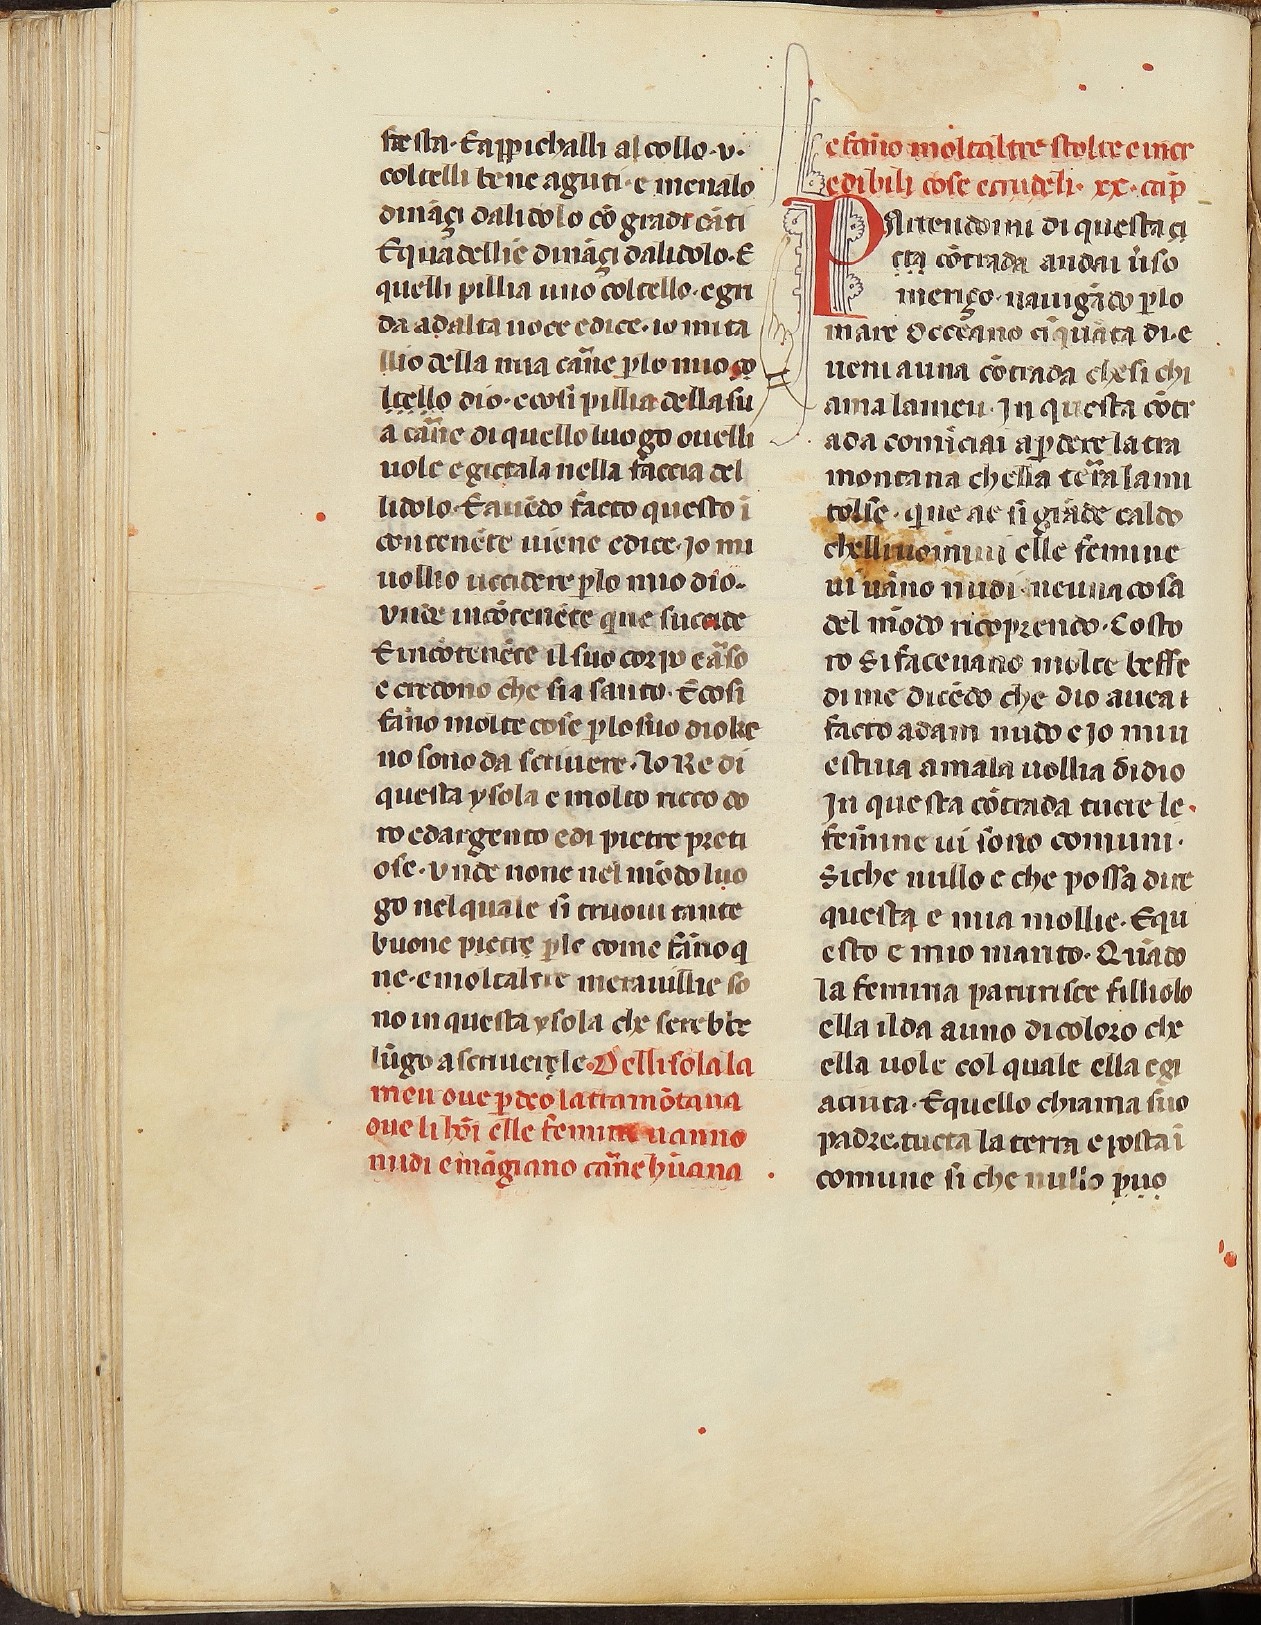 festa· Eappichalli al collo·v·
coltelli bene aguti· e menalo
dināçi dalidolo cō gradi cāti
E quādellie dināçi dalidolo· E
quelli pillia uno coltello· e gri
da ad alta uoce e dice· io mi ta
llio della mia carne plo mio co
ltello dio· e cosi pillia della su
a carne di quello luogo ouelli
uole e gictala nella faccia del
lidolo· E auēdo facto questo ī
contenēte uiene e dice· Jo mi
uollio uccidere plo mio dio·
Vnde incōtenēte quie succide
E incōtenēte il suo corpo e arso
e credono che sia santo· E cosi
fāno molte cose plo suo dio ke
no sono da scriuere· Lo Re di
questa ysola e molto ricco do
ro ed argento e di pietre preti
ose· Vnde none nel mōdo luo
go nel quale si truoui tante
buone pietre ple come fāno q
ne· e moltaltre merauillie so
no in questa ysola che serebbe
lūgo a scriuerle· Dellisola la
meri oue pdeo la tramōtana
oue li hōi elle femine uanno
nudi e māgiano carne hūana
e fāno moltaltre stolte e incr
edibili cose e crudeli· xx· cap
Partendomi di questa çi
cta cōtrada andai ūso
meriço· nauigādo plo
mare Occeano cīquāta di· e
ueni a una cōtrada che si chi
ama lameri· In questa cōtr
ada comīciai a pdere la tra
montana chella terra la mi
tolse· quie ae si grāde caldo
chelli uomini elle femine
ui uāno nudi· neuna cosa
del mōdo ricoprendo· Costo
ro Si faceuano molte beffe
di me dicēdo che dio auea i
facto adam nudo e Jo miu
estiua a mala uollia d̄i dio
In questa cōtrada tucte le·
femine ui sono comuni·
Siche nullo e che possa dire
questa e mia mollie· Equ
esto e mio marito· Quādo
la femina parturisce filliolo
ella il da a uno di coloro che
ella uole col quale ella e gi
aciuta· E quello chiama suo
padre· tucta la terra e posta ī
comune si che nullo puo